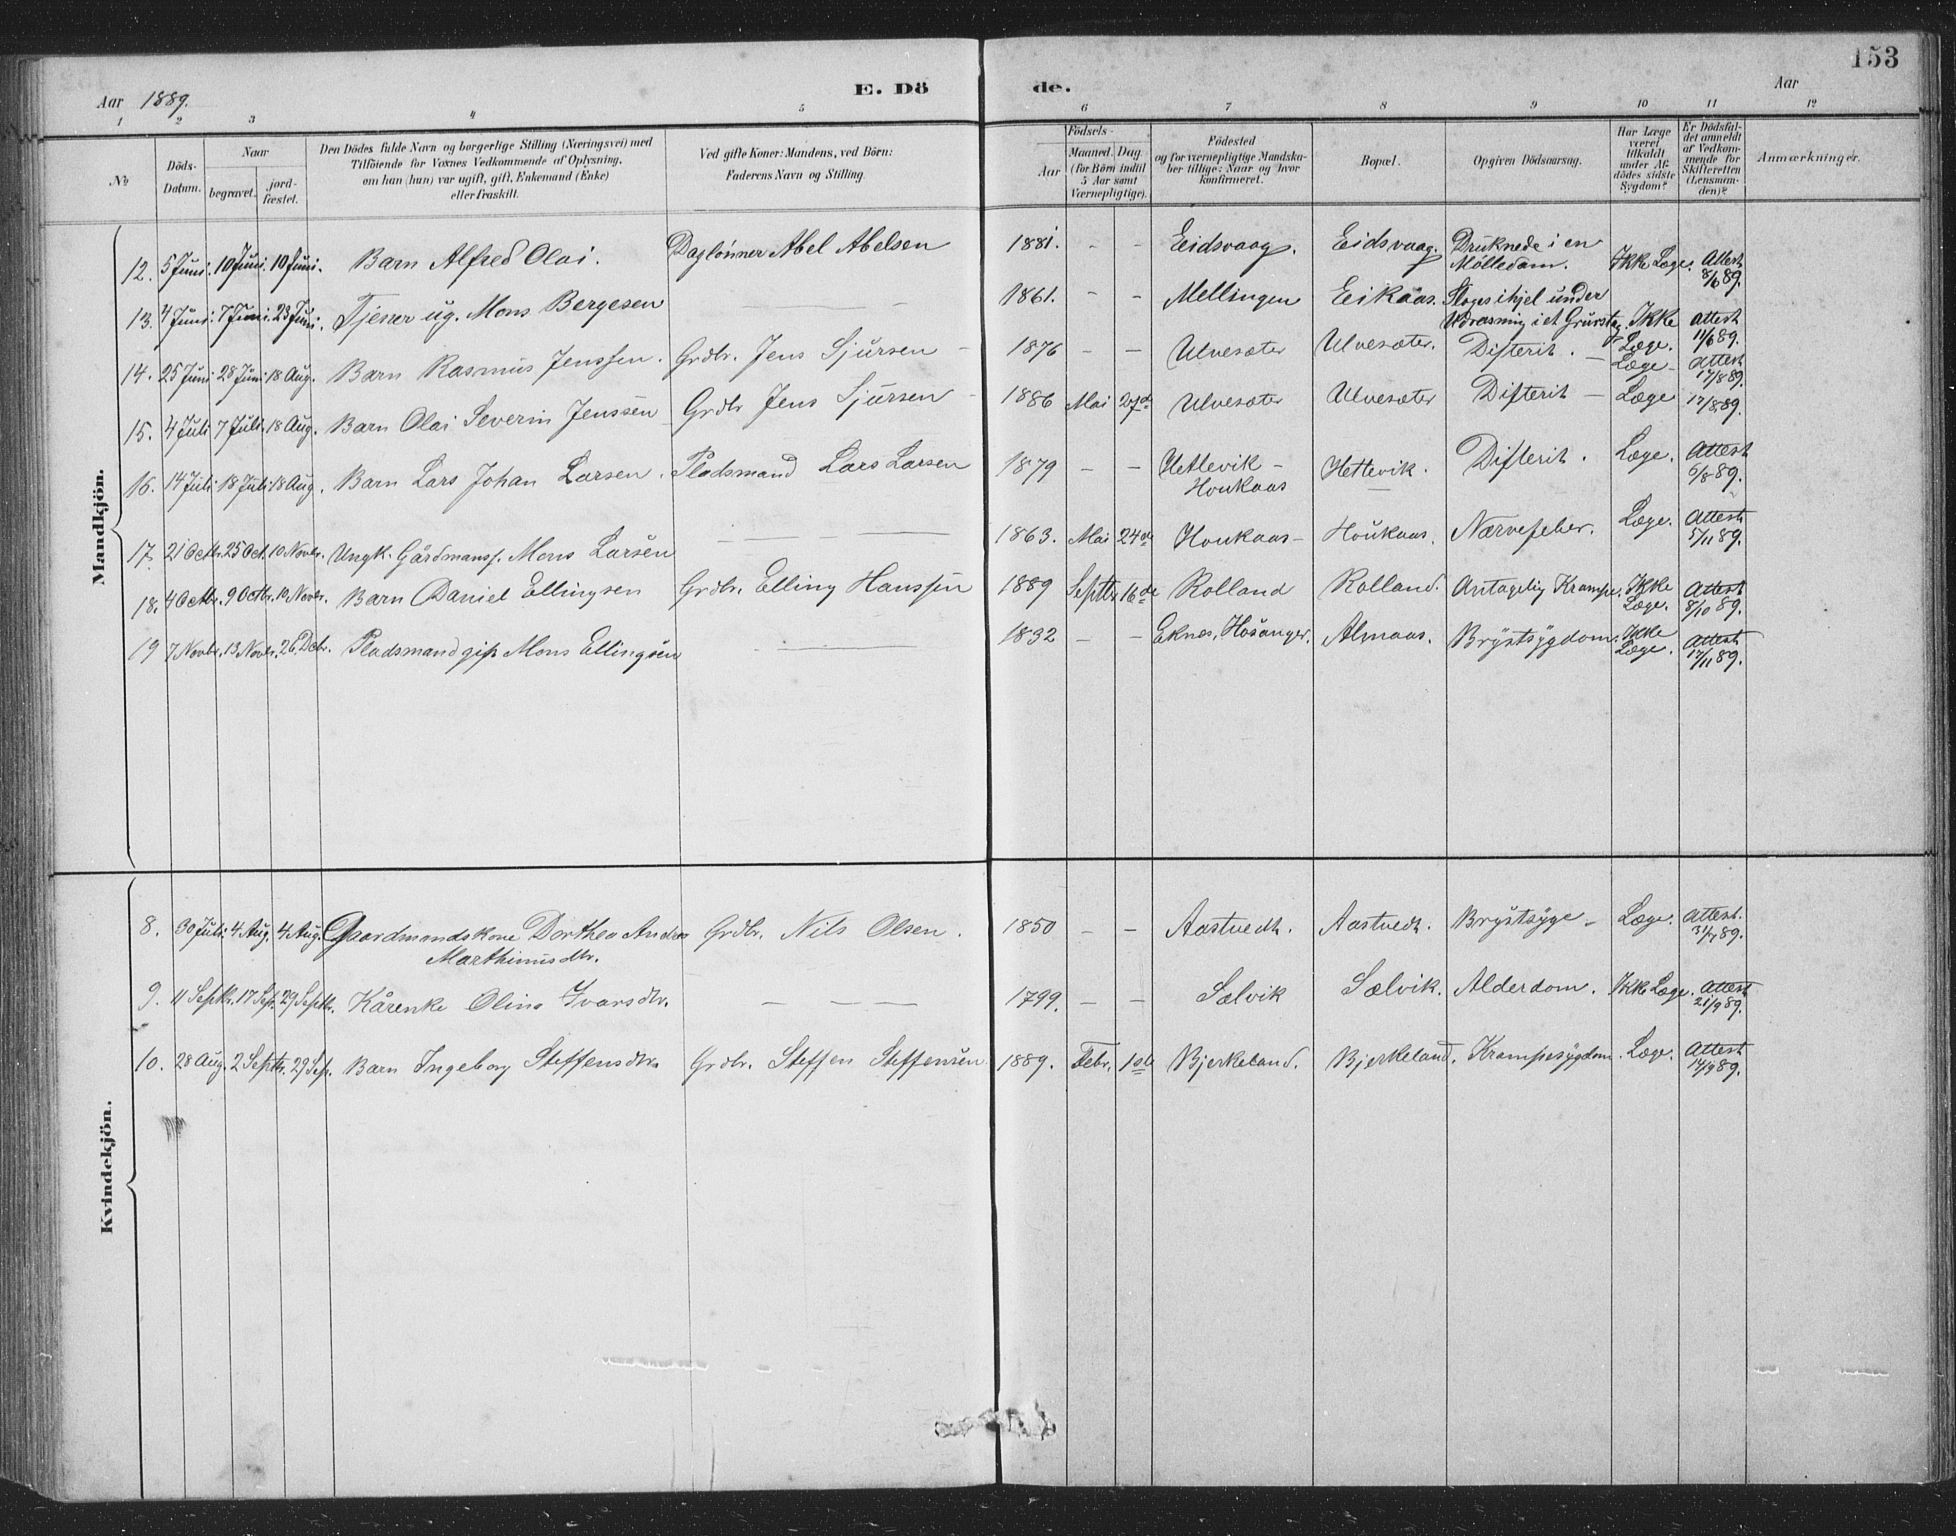 153
Aar 1889. E. Dö de. Aar
1 2 3 4 5 6 7 8 9 10 11 12
No Döds-Datum. Naar begravet. jord-fæstet. Den Dödes fulde Navn og borgerlige Stilling (Næringsvei) med Tilföiende for Voxnes Vedkommende af Oplysning, om han (hun) var ugift, gift, Enkemand (Enke) eller fraskilt. Ved gifte Koner: Mandens, ved Börn: Faderens Navn og Stilling. Födsels- Aar Maaned. Dag. (for Börn indtil 5 Aar samt Værnepligtige). Födested og for værnepligtige Mandska-ber tillige: Naar og hvor konfirmeret. Bopæl. Opgiven Dödsaarsag. Har Læge været tilkaldt under Af-dödes sidste Sygdom? Er Dödsfal-det anmeldt af Vedkom-mende for Skifteretten (Lensman-den)? Anmærkninger.
Mandkjön.
12. 5 Juni. 10 Juni. 10 Juni. Barn Alfred Olai. Daglönner Abel Abelsen 1881. – – Eidsvaag. Eidsvaag. Druknede i en Mölledam. Ikke Læge. Attest 8/6 89.
13. 4 Juni. 7 Juni. 23 Juni. Tjener ug. Mons Bergesen — — 1861. – – Mellingen Eikaas. Sloges ihjel under Udrasning i et Grustag. Ikke Læge. Attest 11/6 89.
14. 25 Juni 28 Juni 18 Aug. Barn Rasmus Jenssen. Grdbr. Jens Sjursen – 1876 – – Ulvesæter Ulvesæter. Difterit. — Læge – Attest 17/8 89.
15. 4 Juli 7 Juli. 18 Aug. Barn Olai Severin Jenssen Grdbr Jens Sjursen – 1886 Mai 27d Ulvesæter Ulvesæter Difterit – Læge 17/8 89.
16. 14 Juli 18 Juli 18 Aug. Barn Lars Johan Larsen. Pladsmand Lars Larsen 1879 – – Hetlevik – Houkaas Hetlevik. Difterit. Læge. Attest 6/8 89.
17. 21 Octbr. 25 Oct. 10 Novbr. Ungk. Gårdmanss. Mons Larsen — — — 1863. Mai 24de Houkaas – Houkaas. Nærvefeber. Læge. Attest 5/11 89.
18. 4 Octbr. 9 Octbr. 10 Novbr. Barn Daniel Ellingsen Grdbr. Elling Hanssen 1889 Septbr 16de Rolland Rolland. Antagelig Krampe. Ikke Læge. Attest 8/10 89.
19 7 Novbr. 13 Novbr. 26. Decbr. Pladsmand gift Mons Ellingsen — — 1832 – – Eknes, Hosanger. Almaas. Brystsygdom. Ikke Læge. Attest 17/11 89.
Kvindekjön.
8. 30 Juli. 4 Aug. 4 Aug. Gaardmandskone Dorthea Andrea Marthinusdtr. Grdbr. Nils Olsen. 1850 – – Aastvedt. Aastvedt. Brystsyge – Læge. Attest. 31/7 89.
9. 11 Septbr. 17 Sep. 29 Septbr. Kårenke Olina Ivarsdtr. — — — 1799. – – Sælvik Sælvik. Alderdom. Ikke Læge. Attest 21/9 89.
10. 28 Aug. 2 Septbr. 29 Sep. Barn Ingeborg Steffensdtr Grdbr. Steffen Steffensen 1889. Febr. 1ste Bjerkeland. Bjerkeland. Krampesygdom. Læge. Attest 14/9 89.